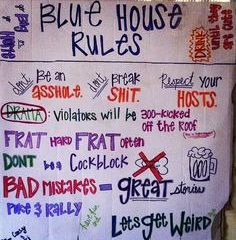 BLUE HOUSE
RULES
don't Be an ASSHOLE.
don't BREAK SHIT.
Respect Your HOSTS.
DRAMA: Violators will be 300-kicked
off the Roof
FRAT HARD FRAT often
DONT be a Cockblock
BAD MISTAKES = GREAT stories
PUKE & RALLY
Lets get WEIRD